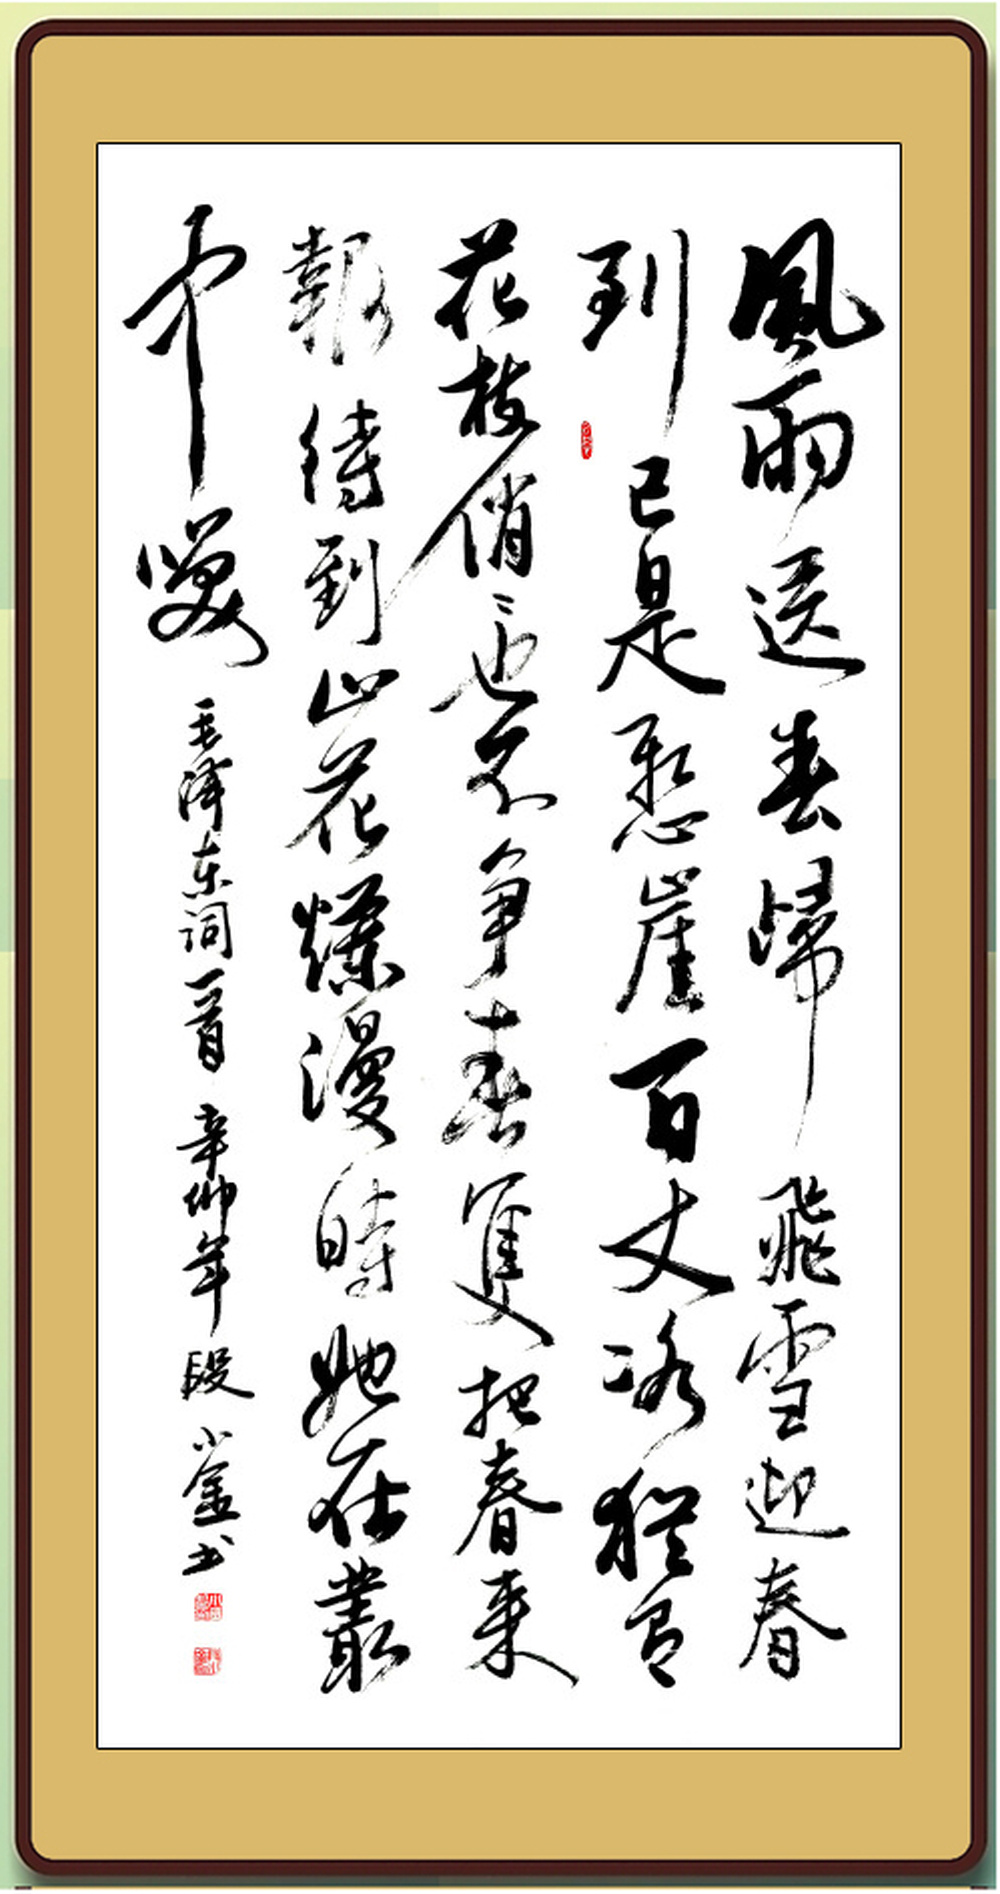 風雨送春歸飛雪迎春
到已是懸崖百丈冰猶有
花枝俏〻也不争春隻把春来
報待到山花爛漫時她在叢
中笑毛泽东词一首辛卯年段小金书